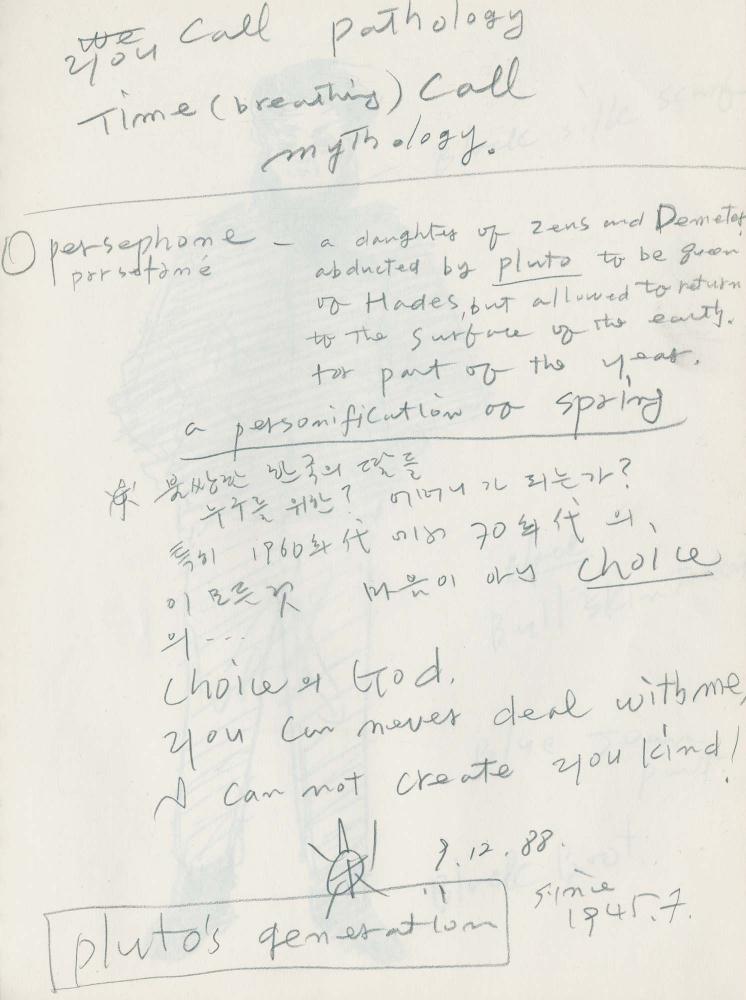 you call pathology
Time (breathing) call
mythology.
persephone – a daughter of Zeus and Demeter
persefəné abducted by pluto to be queen
of Hades, but allowed to return
to the surface of the earth.
for part of the year.
a personification of spring
※ 불쌍한 한국의 딸들
누구를 위한? 어머니가 되는가?
특히 1960年代 에서 70年代 의,
이 모든것 마음이 아닌 choice
의...
choice의 God.
you can never deal with me,
I can not create you kind!
9.12.88.
since
1945.7.
pluto's generation